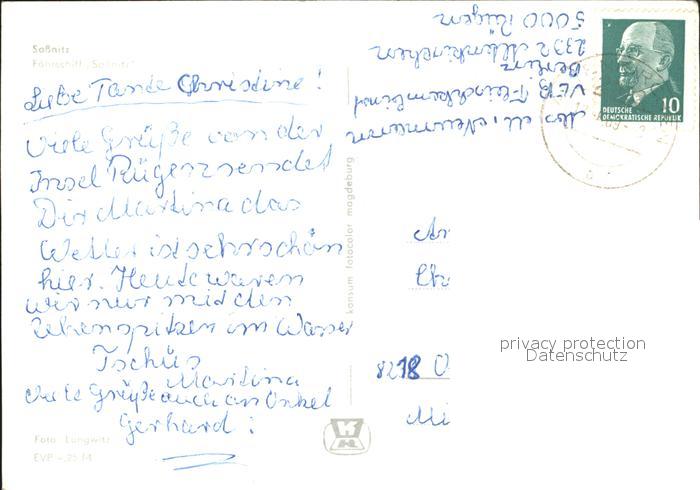 Saßnitz
Fährschiff „Saßnitz"
Liebe Tante Christine!
Viele Grüße von der
Insel Rügen sendet
Dir Martina das
Wetter ist sehr schön
hier. Heute waren
wir nur mit den
Zehenspitzen im Wasser
Tschüs
Martina
Viele Grüße auch an Onkel
Gerhard!
Foto: Lungwitz
EVP -,25 M
konsum fotocolor magdeburg
M. Neumann
VEB Fleischkombinat
Berlin
2332 Altenkirchen
5000 Rügen
DEUTSCHE
DEMOKRATISCHE REPUBLIK
10
An
Chr
8218 O
Mi
privacy protection
Datenschutz